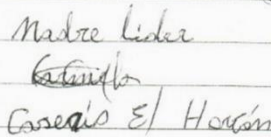 Madre Lider
Caserio El Horcón